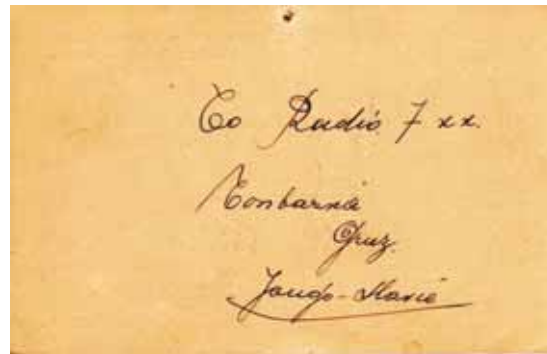 To Radio 7 xx.
Tonbarná
Gruz.
Jougo-Slavie